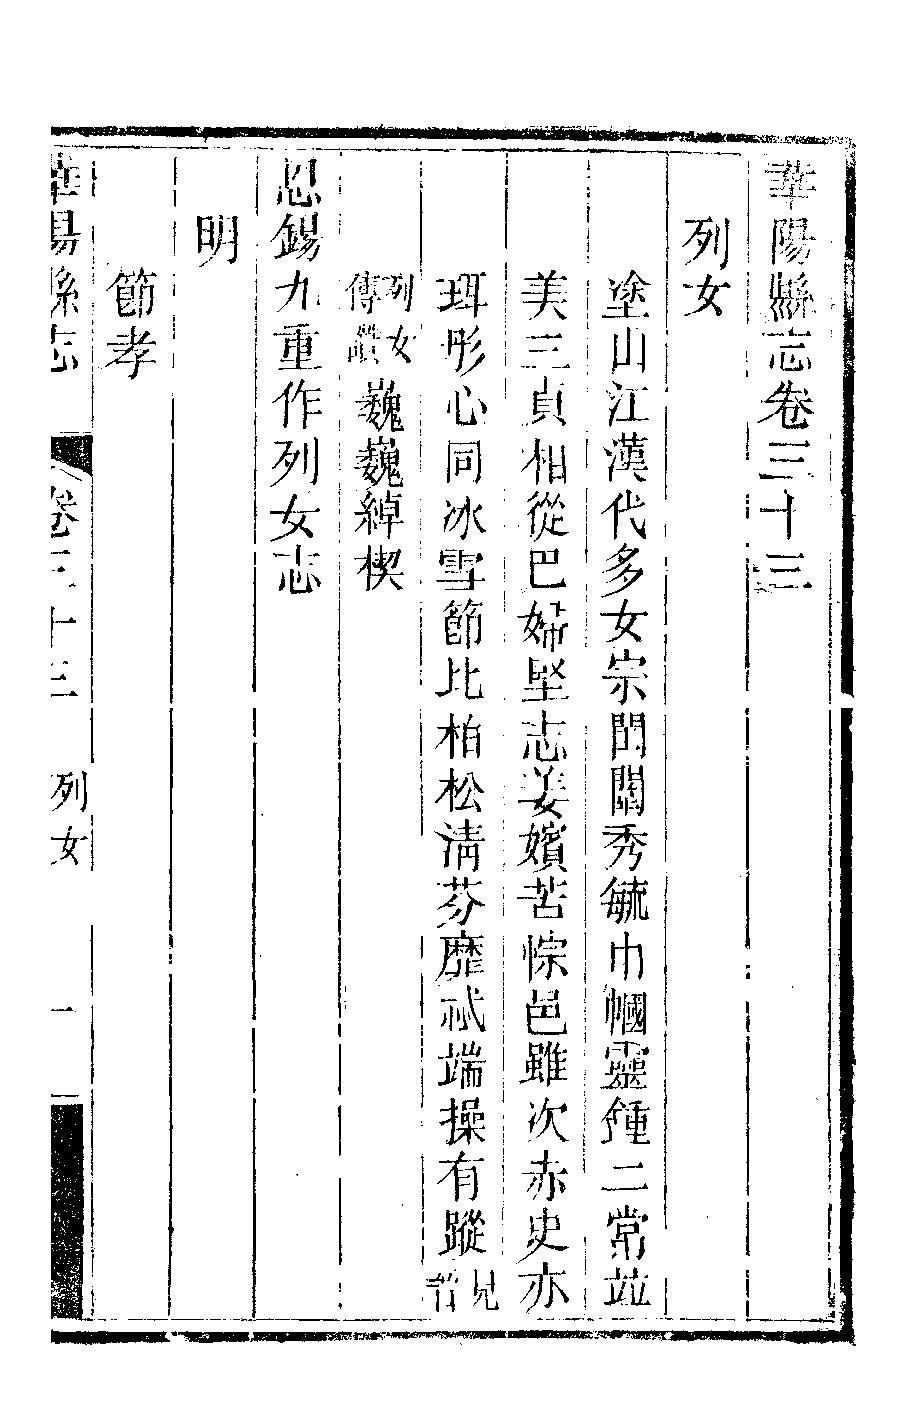 華陽縣志卷三十三
列女
塗山江漢代多女宗閨閫秀毓巾幗靈鍾二常並
美三貞相從巴婦堅志姜嬪苦悰邑雖次赤史亦
珥彤心同冰雪節比柏松清芬靡忒端操有蹤見晉
列女傳讚巍巍綽楔
恩錫九重作列女志
明
節孝
華陽縣志 卷三十三 列女 一